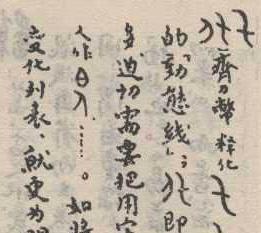 齊刀幣 粹化
的「動態线」；即
多迫切需要把用字
人作……。如將
变化列表、就更为